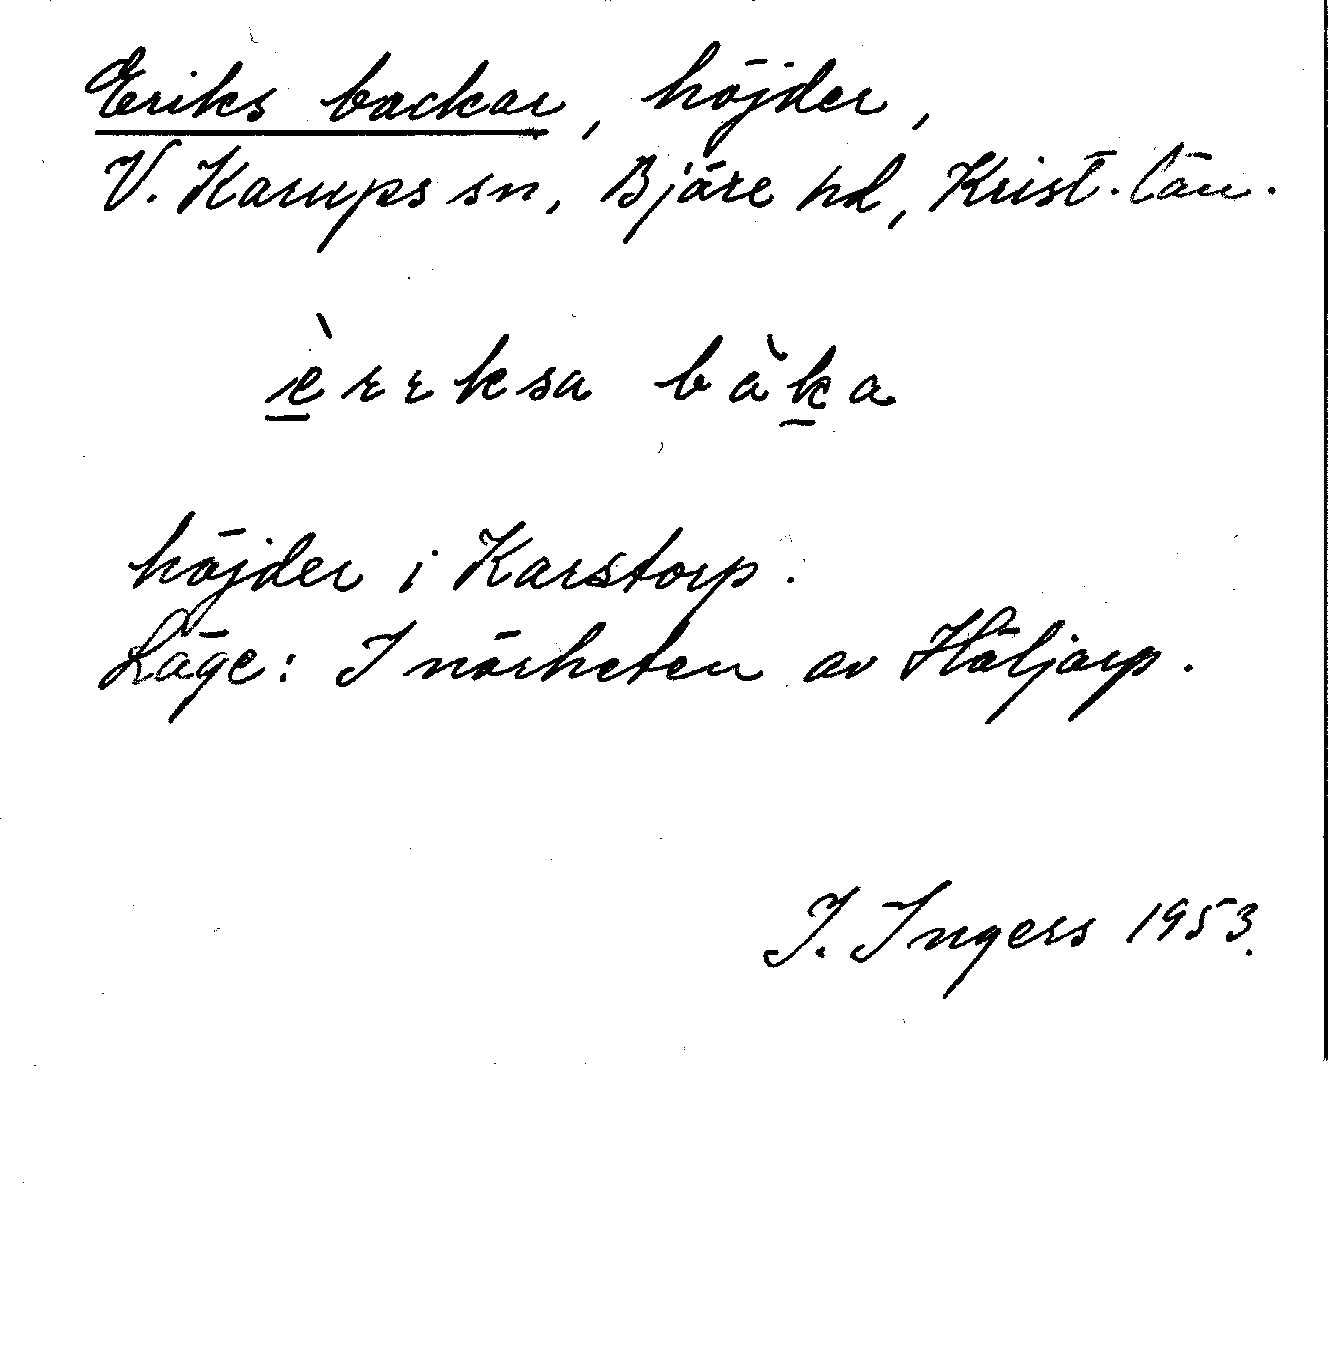 Eriks backar, höjder,
V. Karups sn, Bjäre hd, Krist. län.
èrrksa bàka
höjder i Karstorp.
Läge: I närheten av Häljarp.
I. Ingers 1953.